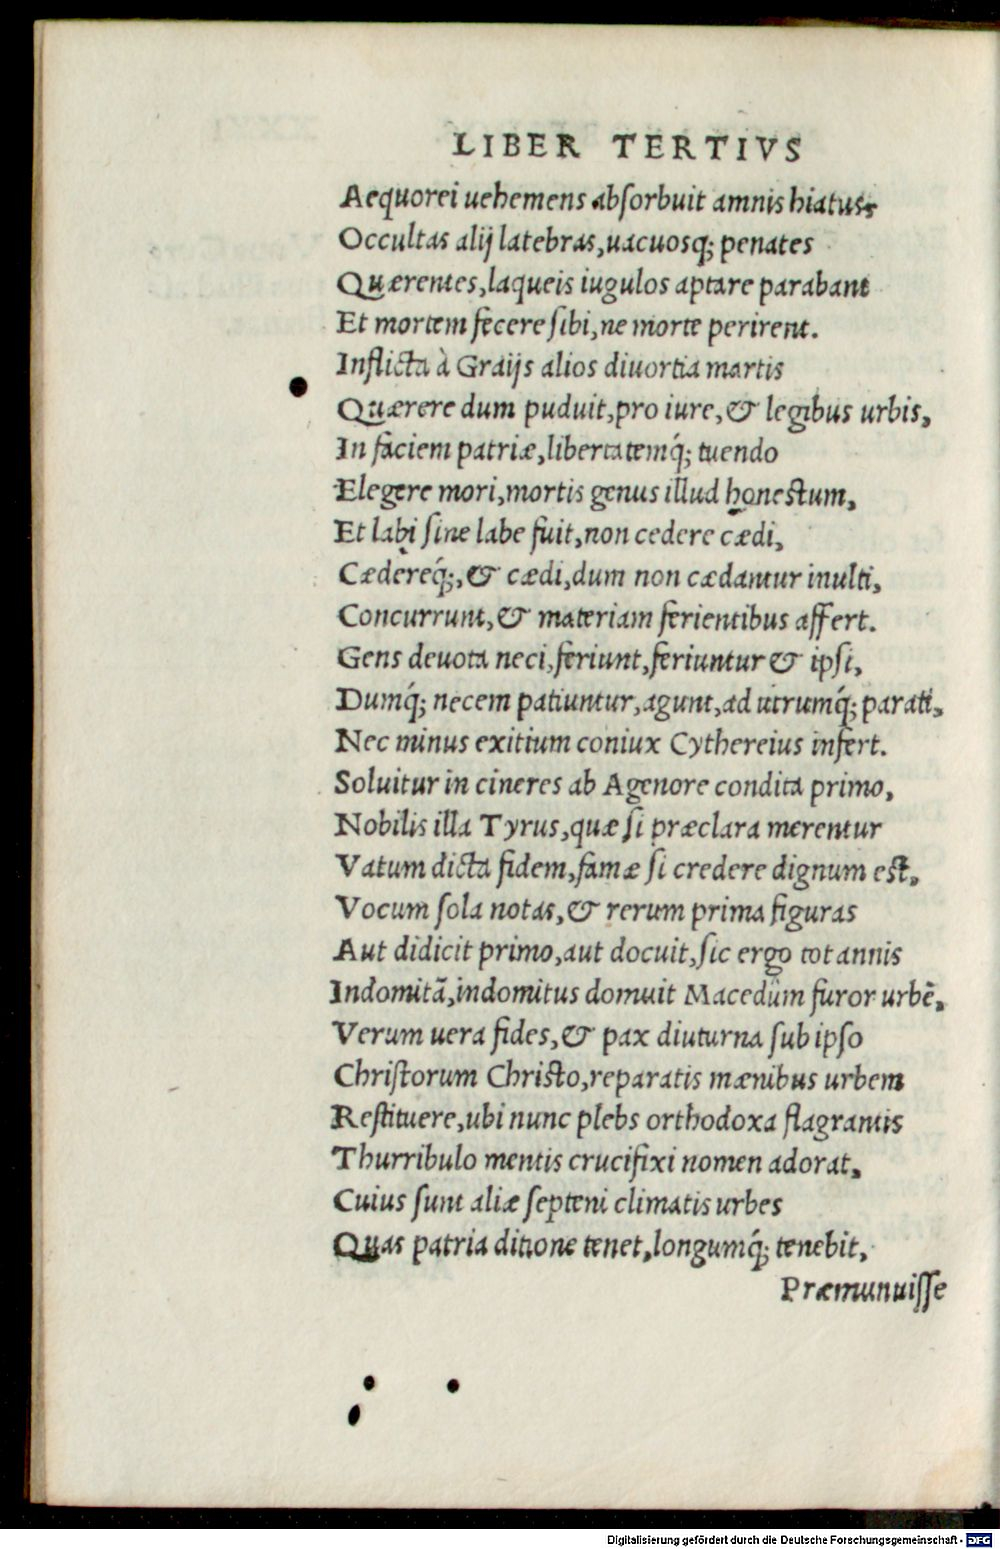 LIBER TERTIVS
Aequorei uehemens absorbuit amnis hiatus,
Occultas alij latebras,uacuosq; penates
Quærentes,laqueis iugulos aptare parabant
Et mortem fecere sibi,ne morte perirent.
Inflicta à Graijs alios diuortia martis
Quærere dum puduit,pro iure,& legibus urbis,
In faciem patriæ,libertatemq́; tuendo
Elegere mori,mortis genus illud honestum,
Et labi sine labe fuit,non cedere cædi,
Cædereq́;,& cædi,dum non cædantur inulti,
Concurrunt,& materiam ferientibus affert.
Gens deuota neci,feriunt,feriuntur & ipsi,
Dumq́; necem patiuntur,agunt,ad utrumq́; parati,
Nec minus exitium coniux Cythereius infert.
Soluitur in cineres ab Agenore condita primo,
Nobilis illa Tyrus,quæ si præclara merentur
Vatum dicta fidem,famæ si credere dignum est,
Vocum sola notas,& rerum prima figuras
Aut didicit primo,aut docuit,sic ergo tot annis
Indomitā,indomitus domuit Macedûm furor urbē,
Verum uera fides,& pax diuturna sub ipso
Christorum Christo,reparatis mænibus urbem
Restituere,ubi nunc plebs orthodoxa flagrantis
Thurribulo mentis crucifixi nomen adorat,
Cuius sunt aliæ septeni climatis urbes
Quas patria ditione tenet,longumq́; tenebit,
Præmunuisse
Digitalisierung gefördert durch die Deutsche Forschungsgemeinschaft - DFG